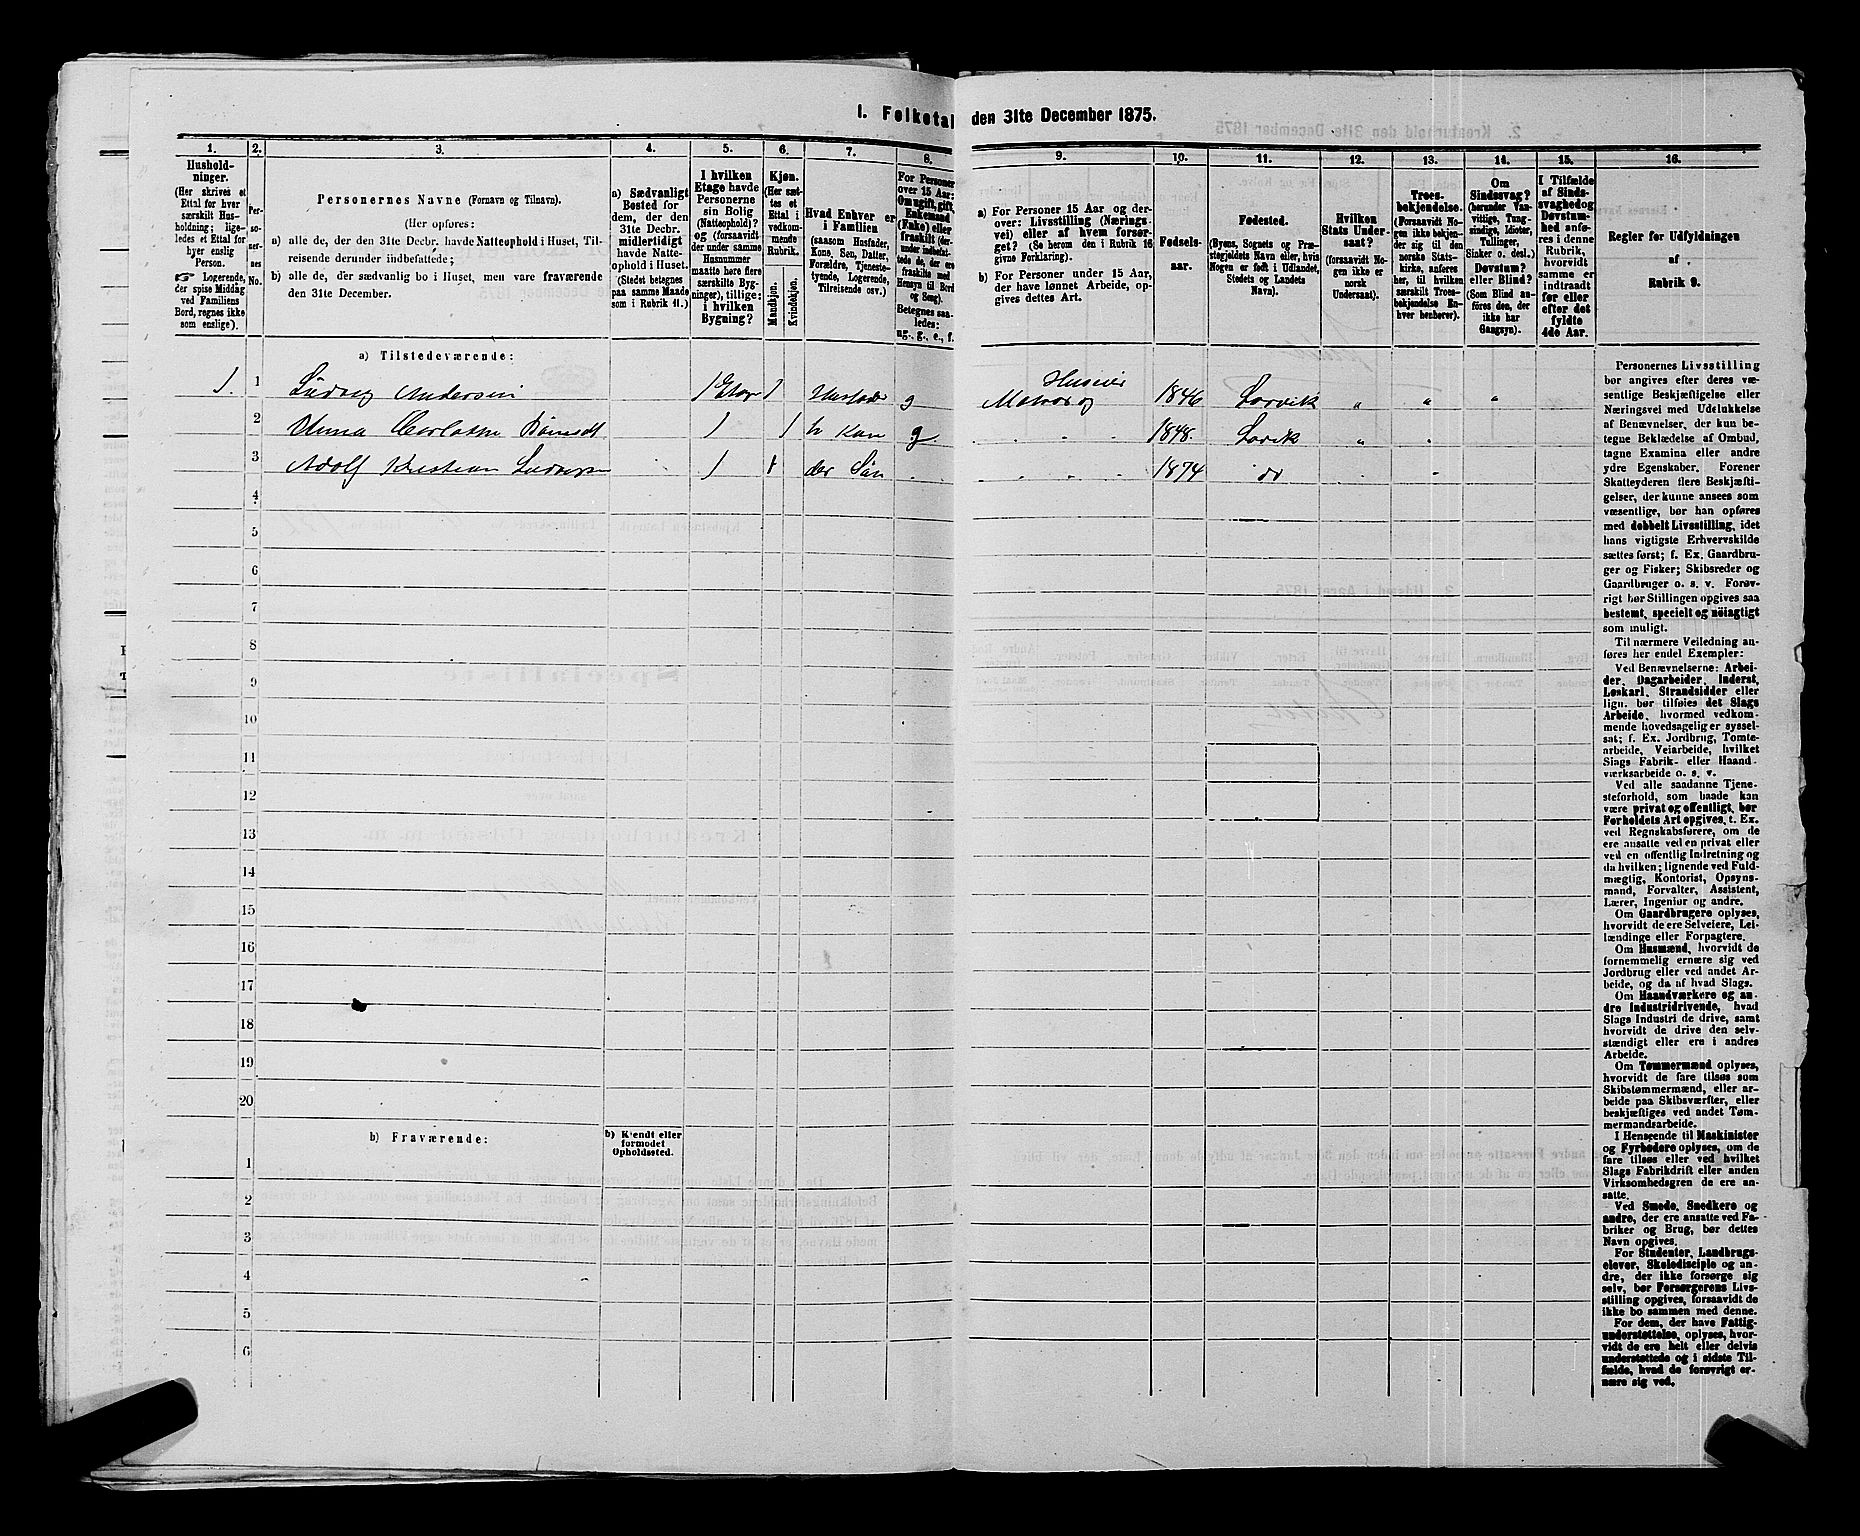 1. Folketal den 31te December 1875.
1.
2.
3.
4.
5.
6.
7.
8.
9.
10.
11.
12.
13.
14.
15.
16.
Husholdninger.
(Her skrives et
Ettal for hver
særskilt Husholdning;
ligeledes et Ettal for
hver enslig
Person.
☞ Logerende,
der spise Middag
ved Familiens
Bord, regnes ikke
som enslige).
Personernes No.
Personernes Navne (Fornavn og Tilnavn).
(Her opføres:
a) alle de, der den 31te Decbr. havde Natteophold i Huset, Tilreisende derunder indbefattede;
b) alle de, der sædvanlig bo i Huset, men vare fraværende
den 31te December.
a) Sædvanligt
Bosted for
dem, der den
31te Decbr.
midlertidigt
havde Natteophold i Huset.
(Stedet betegnes
paa samme Maade
som i Rubrik 11.)
I hvilken
Etage havde
Personerne
sin Bolig
(Natteophold)?
og (forsaavidt
der under samme
Husnummer
maatte høre flere
særskilte Bygninger), tillige:
i hvilken
Bygning?
Kjøn.
(Her sættes et
Ettal i
vedkommende
Rubrik.
Mandkjøn.
Kvindekjøn.
Hvad Enhver er
i Familien
(saasom Husfader,
Kone, Søn, Datter,
Forældre, Tjenestetyende, Logerende,
Tilreisende osv.)
For Personer
over 15 Aar:
Om ugift, gift,
Enkemand
(Enke) eller
fraskilt (derunder indbefattede de, der ere
fraskilte med
Hensyn til Bord
og Seng).
Betegnes saaledes:
ug., g., e., f.
a) For Personer 15 Aar og derover: Livsstilling (Næringsvei) eller af hvem forsørget? (Se herom den i Rubrik 16
givne Forklaring).
b) For Personer under 15 Aar,
der have lønnet Arbeide, opgives dettes Art.
Fødselsaar.
Fødested.
(Byens, Sognets og Præstegjeldets Navn eller, hvis
Nogen er født i Udlandet,
Stedets og Landets
Navn).
Hvilken
Stats Undersaat?
(forsaavidt Nogen ikke er
norsk
Undersaat).
Troesbekjendelse.
(Forsaavidt Nogen ikke bekjender sig til den
norske Statskirke, anføres
her, til hvilken
særskilt Troesbekjendelse Enhver henhører).
Om
Sindssvag?
(herunder Vanvittige, Tungsindige, Idioter,
Tullinger,
Sinker o. desl.)
Døvstum?
eller Blind?
(Som Blind anføres den, der
ikke har
Gangsyn).
I Tilfælde
af Sindssvaghed og
Døvstumhed anføres i denne
Rubrik,
hvorvidt
samme er
indtraadt
før eller
efter det
fyldte
4de Aar.
Regler for Udfyldningen
af
Rubrik 9.
a) Tilstedeværende:
1. 1 Ludvig Andersen 1 Etage 1 Husfader g Matros og Huseier 1846 Larvik " " "
2 Anna 1 1 h Kone g 1848. Larvik " "
3 Adolf Kristian 1 1 der Søn 1874 do
4
5
6
7
8
9
10
11
12
13
14
15
16
17
18
19
20
b) Fraværende:
b) Kjendt eller
formodet
Opholdssted.
1
2
3
4
5
6
Personernes Livsstilling
bør angives efter deres væsentlige Beskjæftigelse eller
Næringsvei med Udelukkelse
af Benævnelser, der kun betegne Beklædelse af Ombud,
tagne Examina eller andre
ydre Egenskaber. Forener
Skatteyderen flere Beskjæftigelser, der kunne ansees som
væsentlige, bør han opføres
med dobbelt Livsstilling, idet
hans vigtigste Erhvervskilde
sættes først; f. Ex. Gaardbruger og Fisker; Skibsreder og
Gaardbruger o. s. v. Forøvrigt bør Stillingen opgives saa
bestemt, specielt og nöiagtigt
som muligt.
Til nærmere Veiledning anføres her endel Exempler:
Ved Benævnelserne: Arbeider, Dagarbeider, Inderst,
Løskarl, Strandsidder eller
lign. bør tilføies det Slags
Arbeide, hvormed vedkommende hovedsagelig er sysselsat; f. Ex. Jordbrug, Tomtearbeide, Veiarbeide, hvilket
Slags Fabrik- eller Haandværksarbeide o. s. v.
Ved alle saadanne Tjenesteforhold, som baade kan
være privat og offentligt, bør
Forholdets Art opgives, t. Ex.
ved Regnskabsførere, om de
ere ansatte ved en privat eller
ved en offentlig Indretning og
da hvilken; lignende ved Fuldmægtig, Kontorist, Opsynsmand, Forvalter, Assistent,
Lærer, Ingeniør og andre.
Om Gaardbrugere oplyses,
hvorvidt de ere Selveiere, Leilændinge eller Forpagtere.
Om Husmænd, hvorvidt de
fornemmelig ernære sig ved
Jordbrug eller ved andet Arbeide, og da af hvad Slags.
Om Haandværkere og andre industridrivende, hvad
Slags Industri de drive, samt
hvorvidt de drive den selvstændigt eller ere i andres
Arbeide.
Om Tømmermænd oplyses,
hvorvidt de fare tilsøs som
Skibstømmermænd, eller arbeide paa Skibsværfter, eller
beskjæftiges ved andet Tømmermandsarbeide.
I Henseende til Maskinister
og Fyrbødere oplyses, om de
fare tilsøs eller ved hvilket
Slags Fabrikdrift eller anden
Virksomhedsgren de ere ansatte.
Ved Smede, Snedkere og
andre, der ere ansatte ved Fabriker og Brug, bør dettes
Navn opgives.
For Studenter, Landbrugselever, Skoledisciple og andre, der ikke forsørge sig
selv, bør Forsørgerens Livsstilling opgives, forsaavidt de
ikke bo sammen med denne.
For dem, der have Fattigunderstøttelse, oplyses, hvorvidt de ere helt eller delvis
understøttede og i sidste Tilfælde, hvad de forøvrigt ernære sig ved.